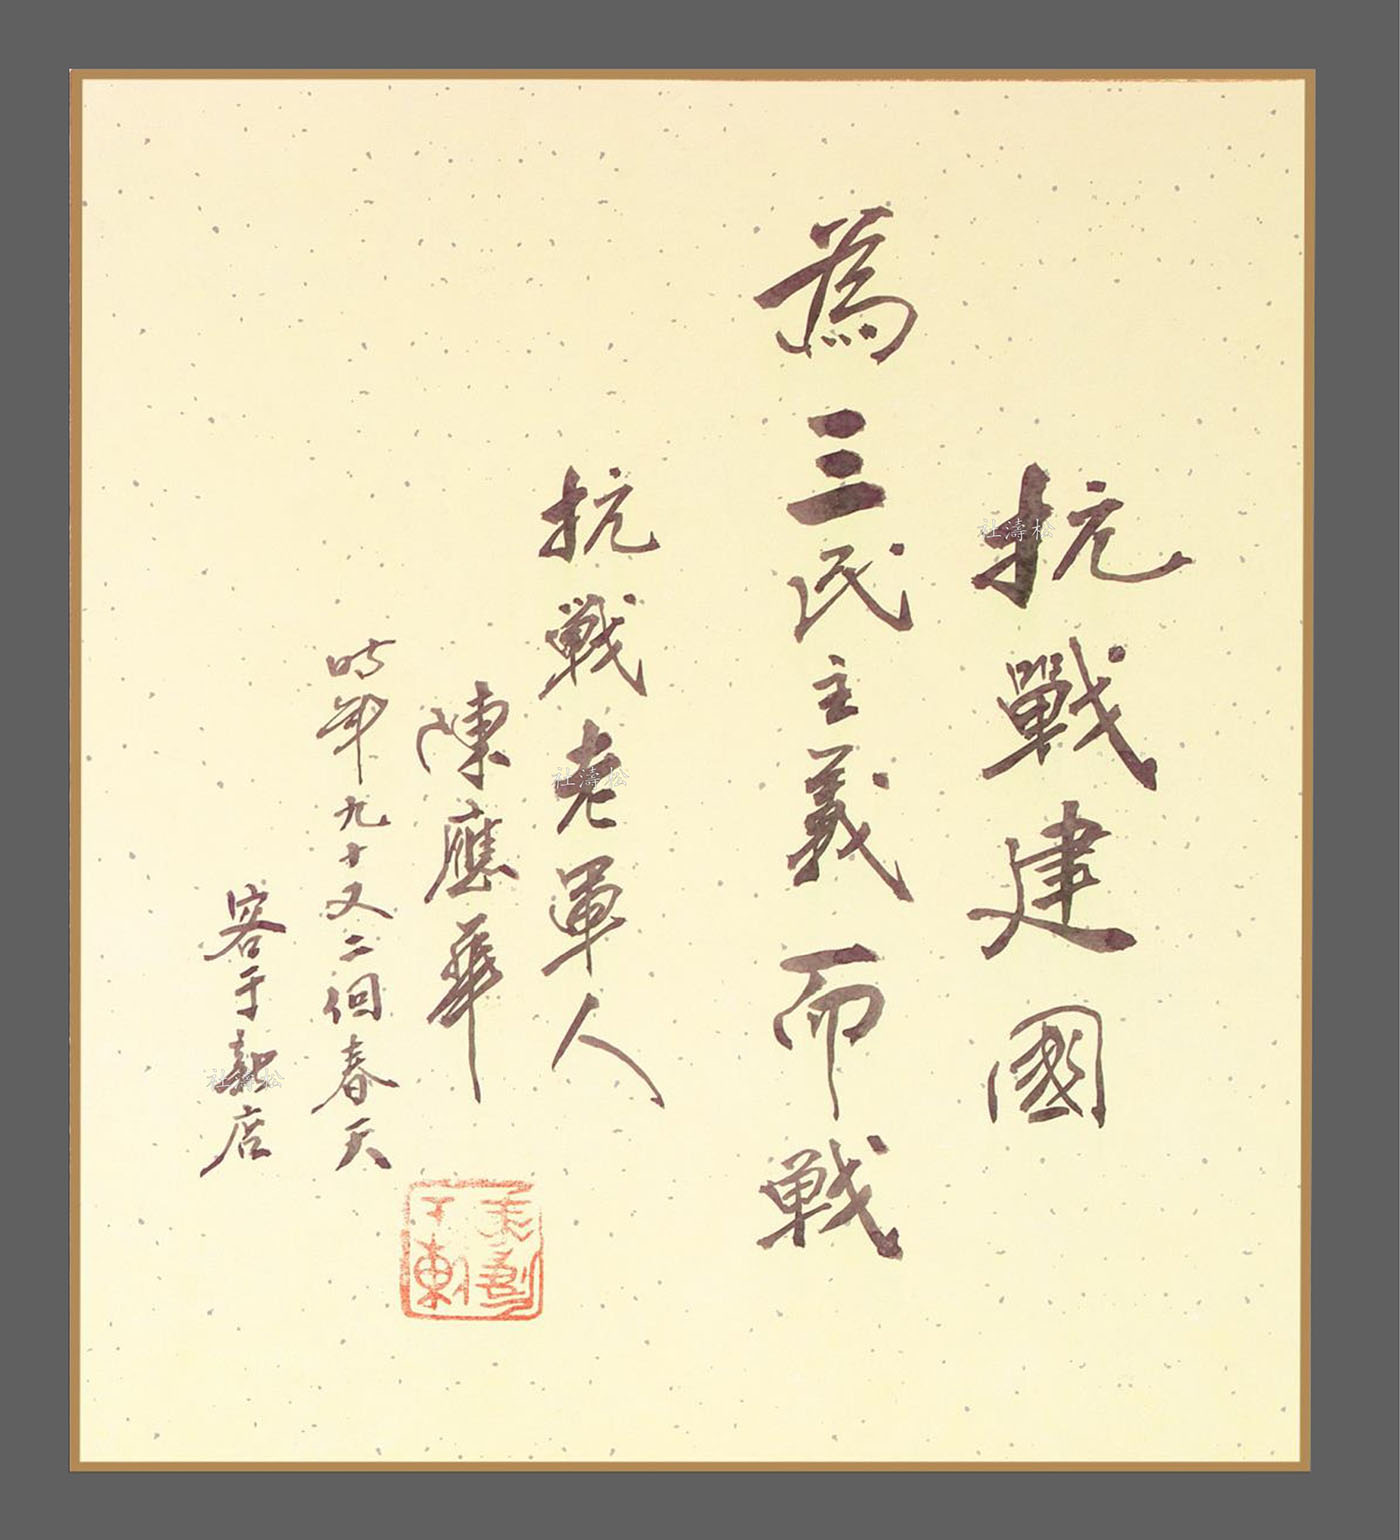 抗戰建國
為三民主義而战
抗战老軍人
陳應華
時年九十又二個春天
客于新店
社濤松
社濤松
社濤松